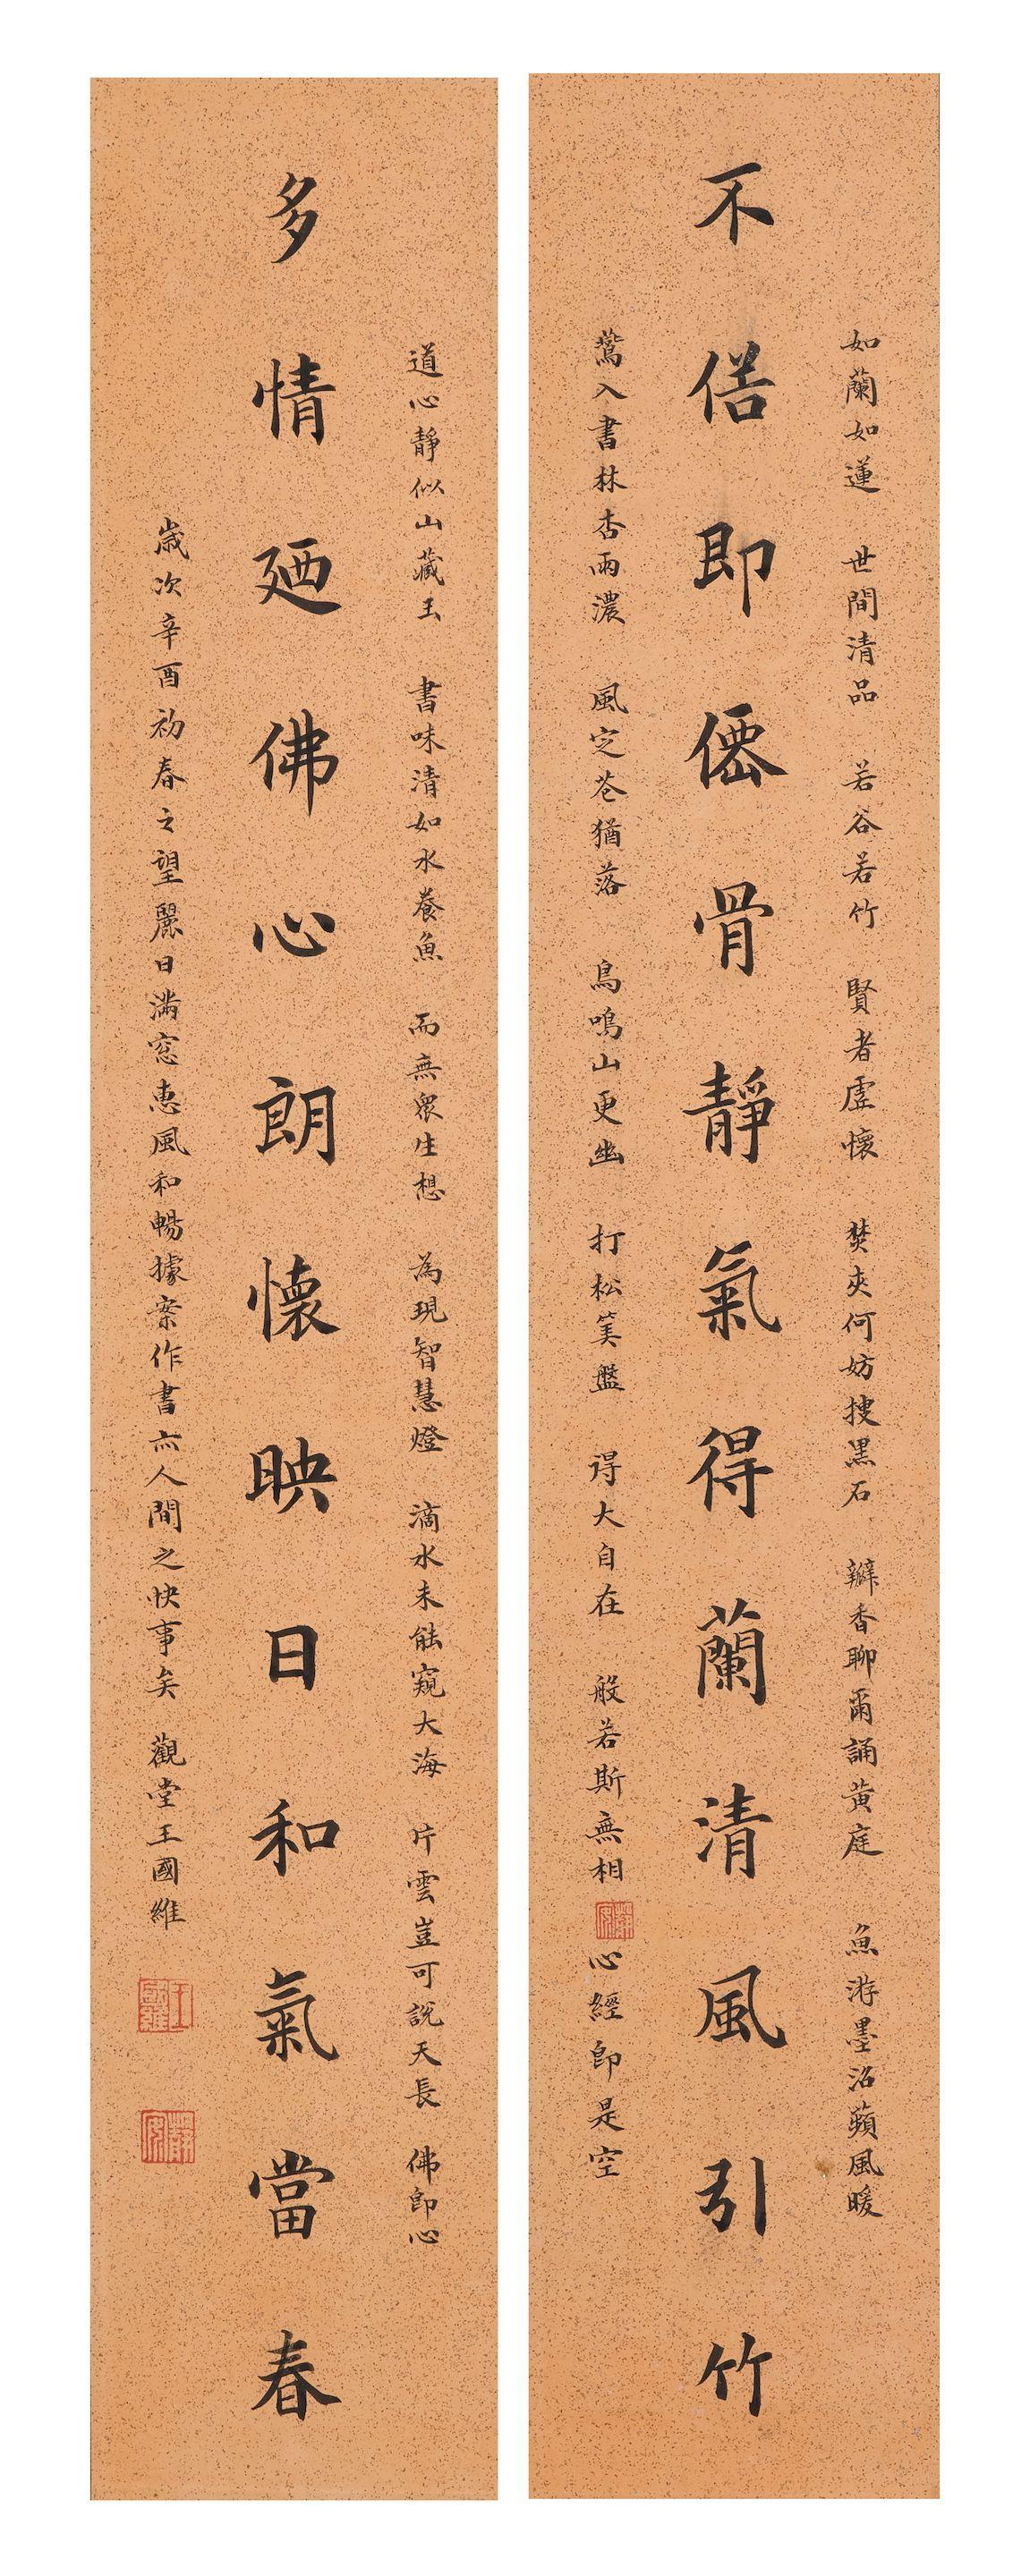 如蘭如蓮 世間清品 若谷若竹 賢者虛懷 焚夾何妨捜黑石 瓣香聊爾誦黃庭 魚游墨沼蘋風暖
不俗即僊骨靜氣得蘭清風引竹
鶯入書林杏雨濃 風定花猶落 鳥鳴山更幽 打松筭盤 得大自在 般若斯無相 心經即是空
道心靜似山藏玉 書味清如水養魚 而無眾生想 為現智慧燈 滴水未能窺大海 片雲豈可說天長 佛即心
多情廼佛心朗懷映日和氣當春
歲次辛酉初春之望麗日滿窓惠風和暢據案作書亦人間之快事矣 觀堂王國維
王國維
靜安